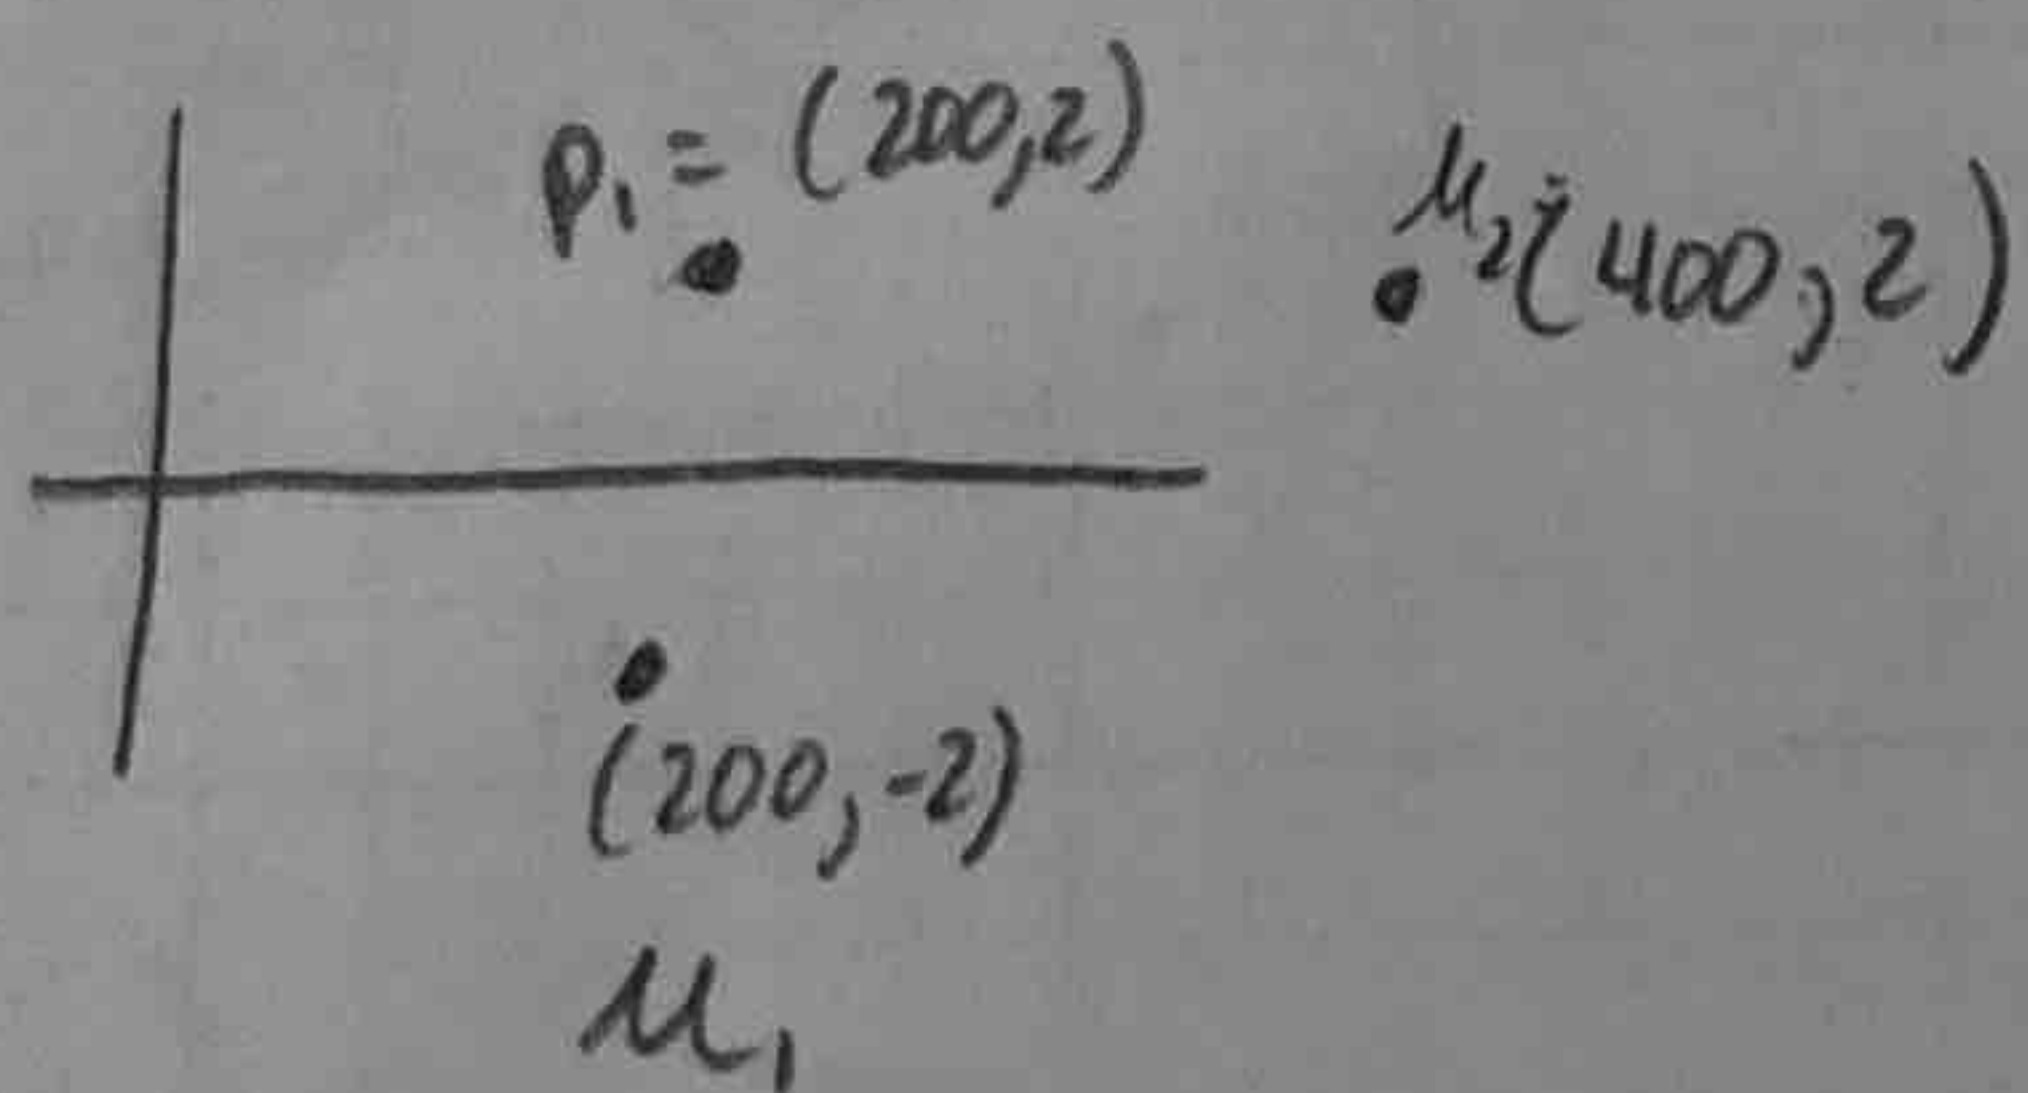 p₁ = (200,2)
μ₂ (400,2)
(200,-2)
μ₁